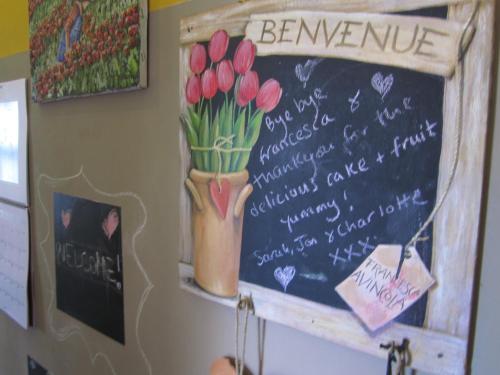 BENVENUE
Bye bye
francesca &
thankyou for the
delicious cake + fruit
yummy!
Sarah, Jon & Charlotte
XXX
FRANCESCA
AVINOLA
WELCOME!